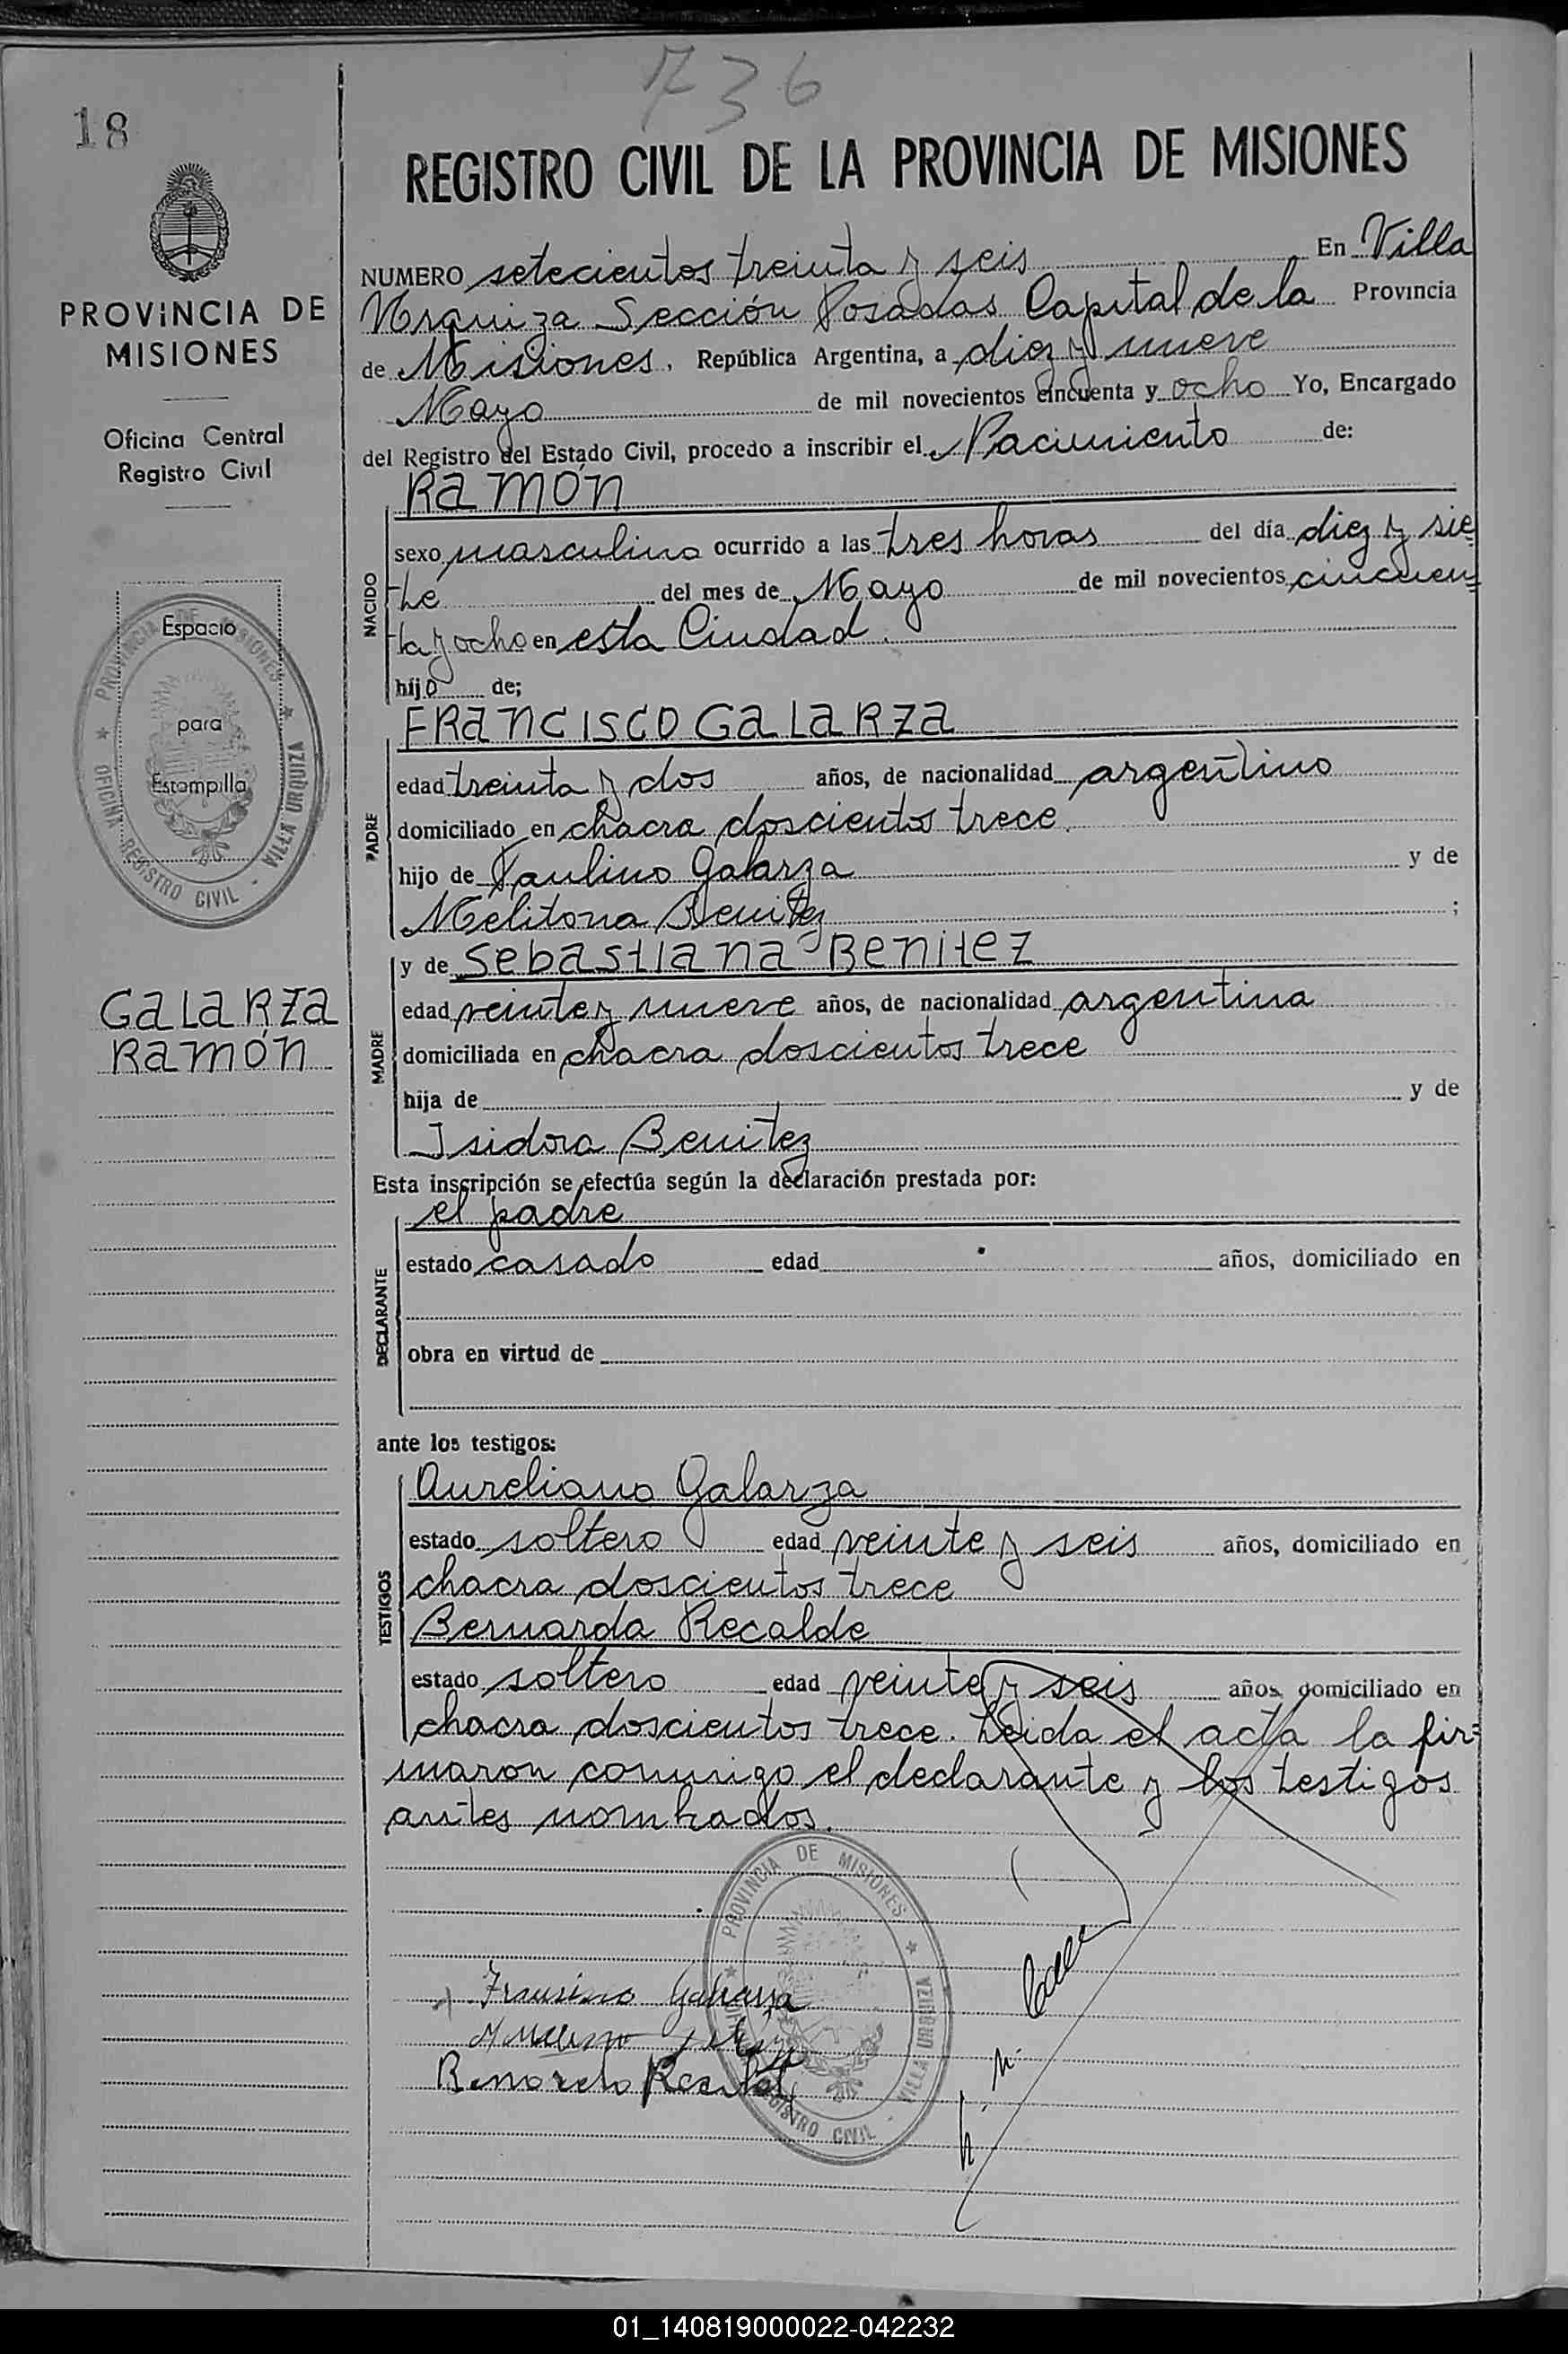 736
18
REGISTRO CIVIL DE LA PROVINCIA DE MISIONES
PROVINCIA DE
MISIONES
Oficina Central
Registro Civil
Espacio
para
Estampilla
PROVINCIA DE MISIONES
OFICINA REGISTRO CIVIL - VILLA URQUIZA
GALARZA
RAMÓN
NUMERO setecientos treinta y seis En Villa
Urquiza Sección Posadas Capital de la Provincia
de Misiones, República Argentina, a diez y nueve
Mayo de mil novecientos cincuenta y ocho Yo, Encargado
del Registro del Estado Civil, procedo a inscribir el Nacimiento de:
RAMÓN
NACIDO
sexo masculino ocurrido a las tres horas del día diez y sie
te del mes de Mayo de mil novecientos cincuen
ta y ocho en esta Ciudad.
hijo de;
FRANCISCO GALARZA
PADRE
edad treinta y dos años, de nacionalidad argentino
domiciliado en chacra doscientos trece.
hijo de Paulino Galarza y de
Melitona Benitez ;
y de SEBASTIANA BENITEZ
MADRE
edad veinte y nueve años, de nacionalidad argentina
domiciliada en chacra doscientos trece
hija de y de
Isidora Benitez
Esta inscripción se efectúa según la declaración prestada por:
el padre
DECLARANTE
estado casado edad años, domiciliado en
obra en virtud de
ante los testigos:
Aureliano Galarza
TESTIGOS
estado soltero edad veinte y seis años, domiciliado en
chacra doscientos trece
Bernarda Recalde
estado soltero edad veinte y seis años, domiciliado en
chacra doscientos trece. Leida el acta la fir=
maron conmigo el declarante y los testigos
antes nombados.
PROVINCIA DE MISIONES
REGISTRO CIVIL - VILLA URQUIZA
Francisco Galarza
01_140819000022-042232